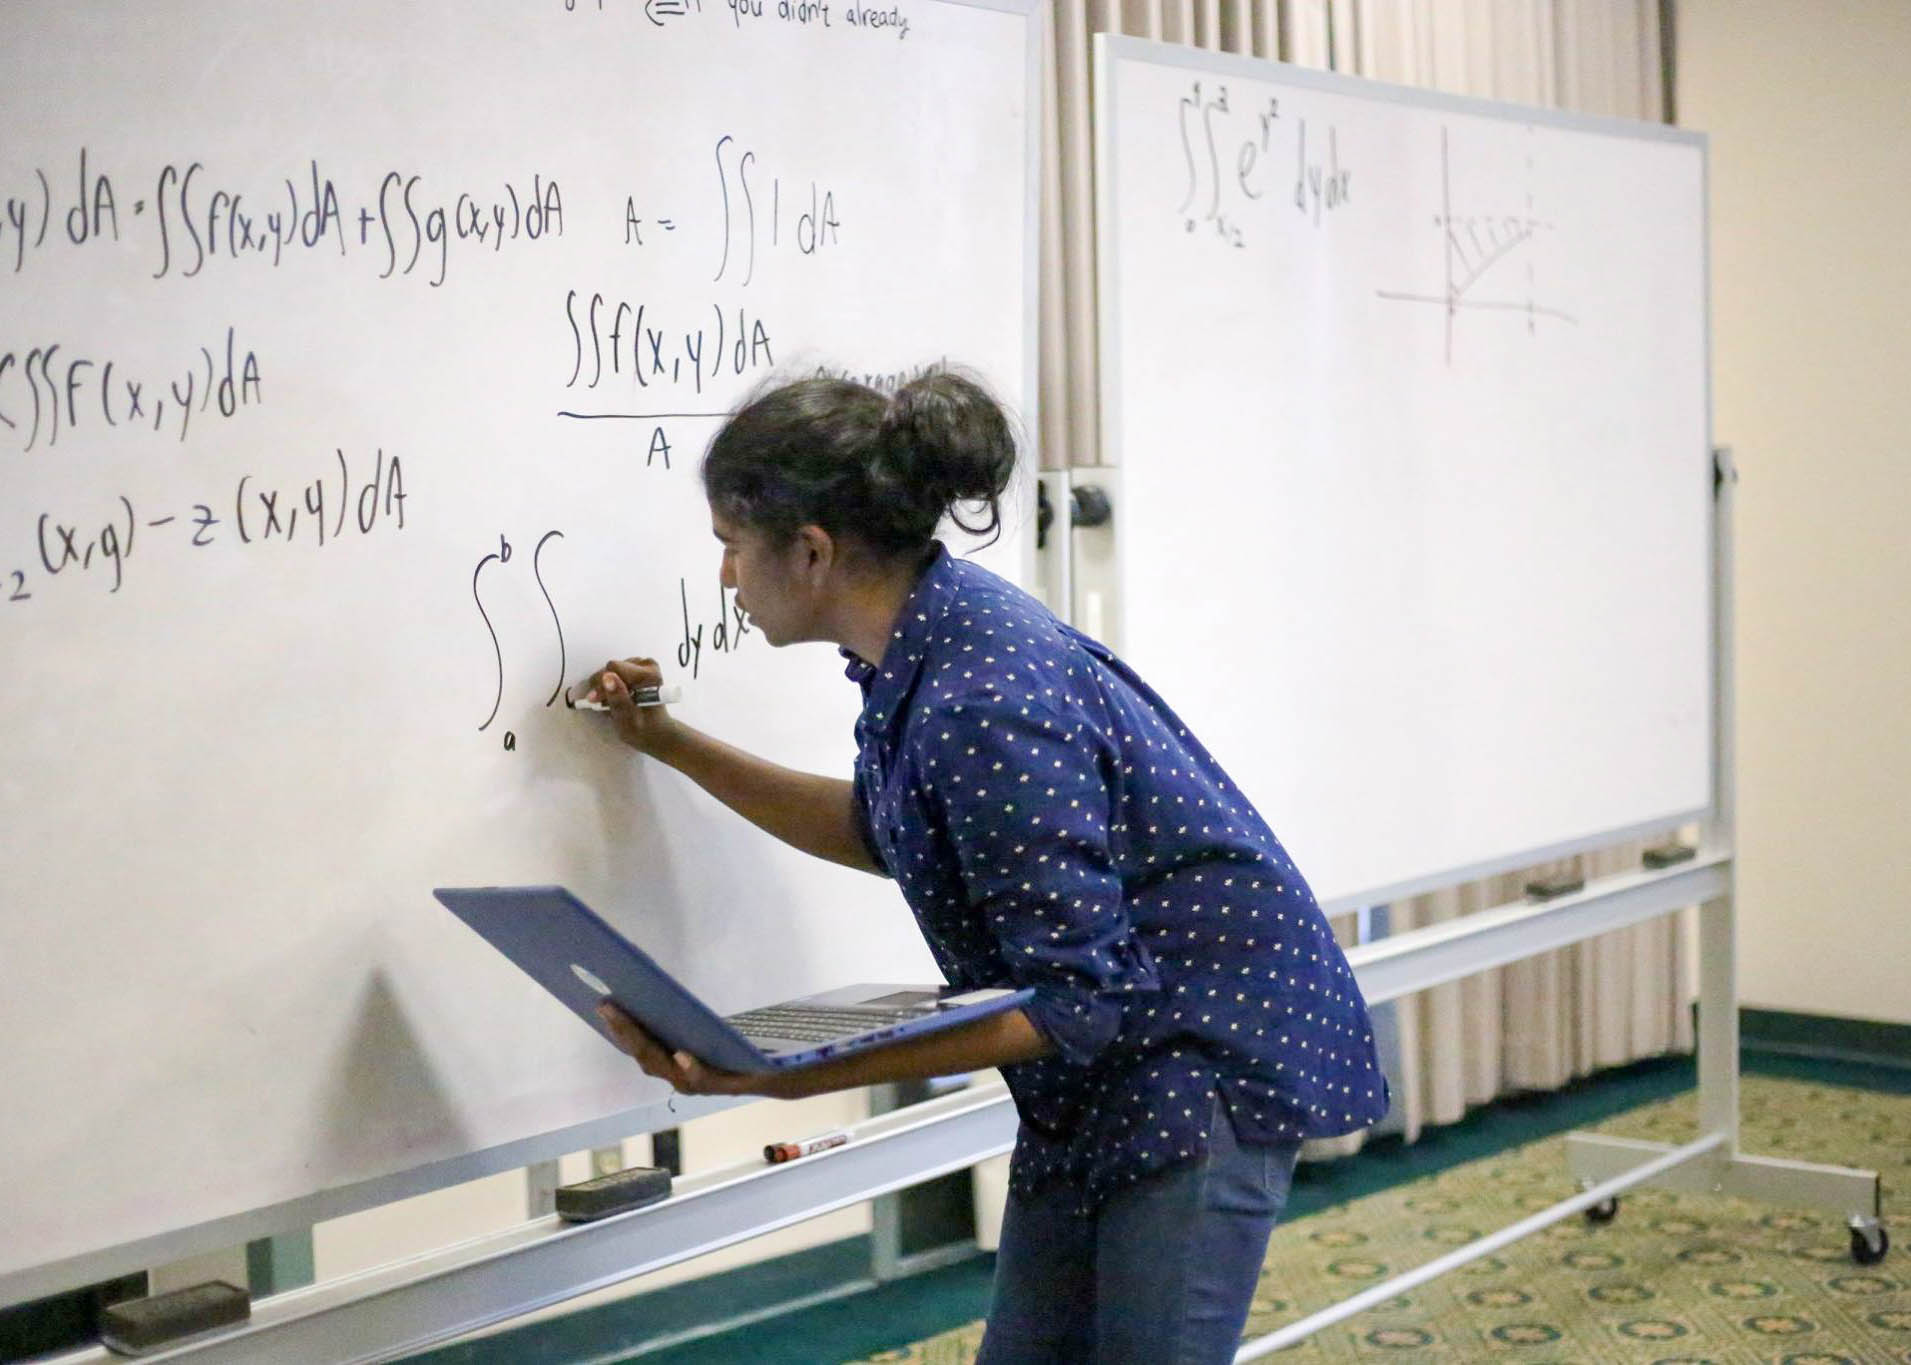 you didn't already
y) dA = ∫∫f(x,y)dA + ∫∫g(x,y)dA
A = ∫∫ 1 dA
∫∫f(x,y)dA
A
C∫∫F(x,y)dA
2 (x,y) - z (x,y) dA
∫ₐᵇ ∫ dy dx
∫₀⁴ ∫ₓ/₂² e^y² dy dx